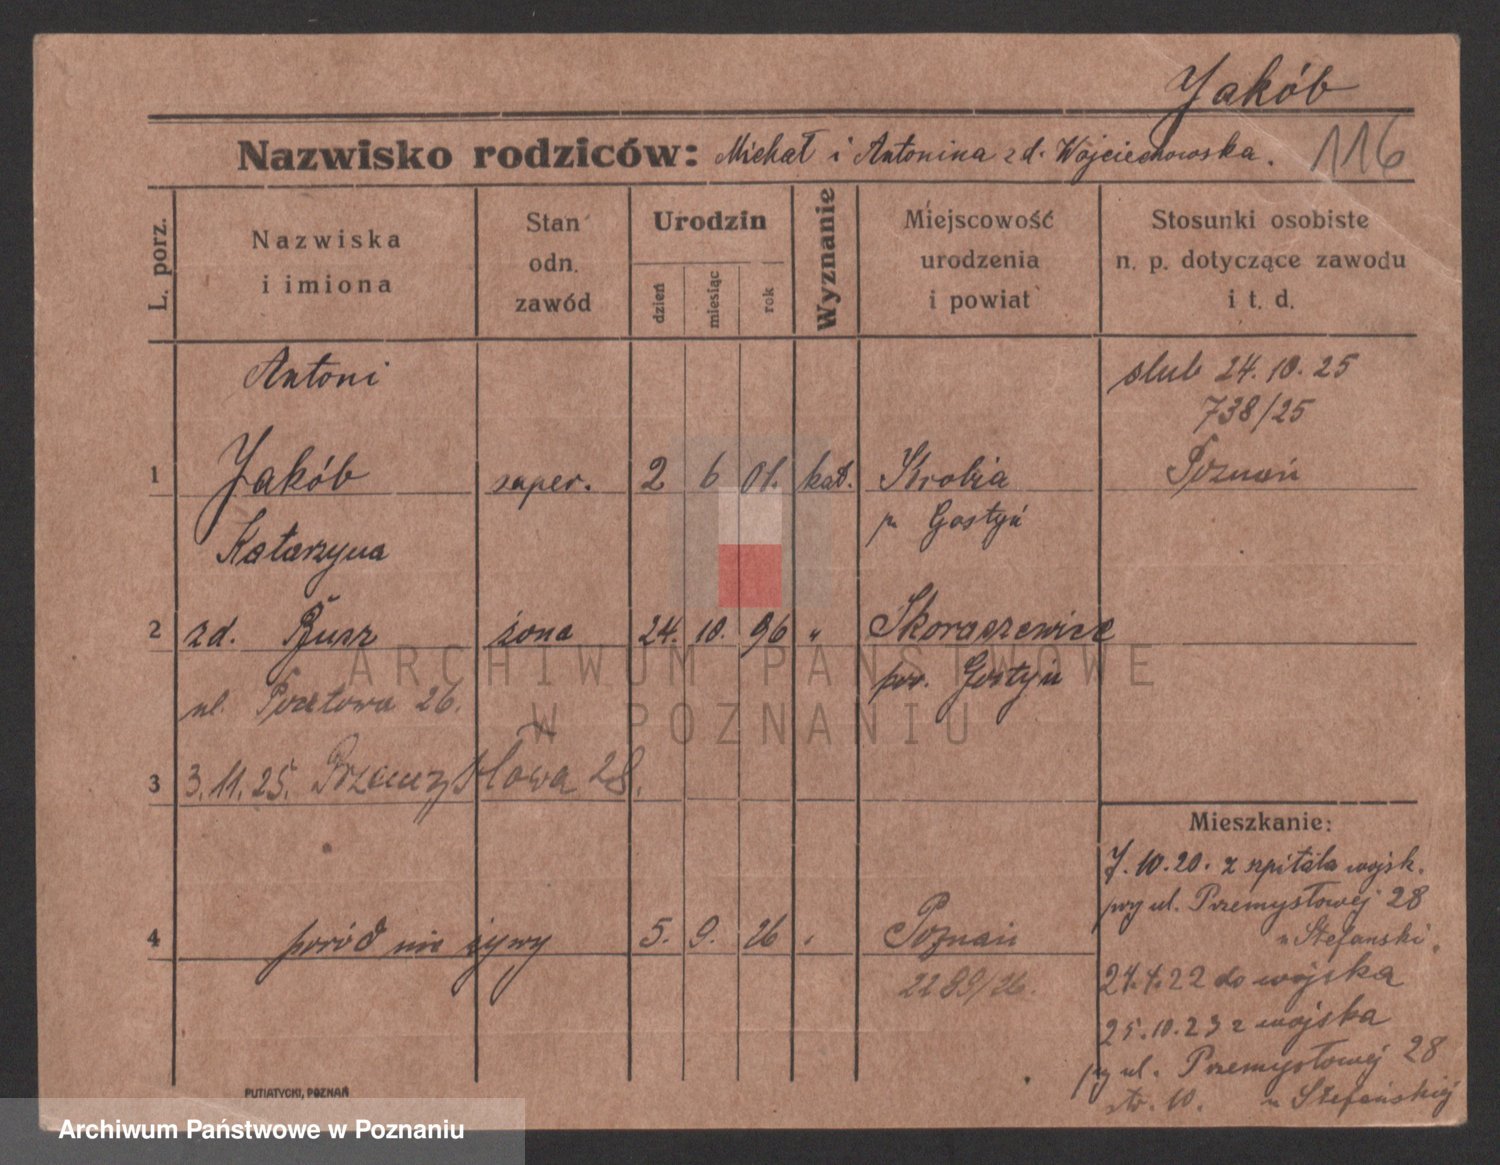 Jakób
Nazwisko rodziców: Michał i Antonina zd. Wojciechowska. 116
L. porz.
Nazwiska i imiona
Stan odn. zawód
Urodzin
dzień
miesiąc
rok
Wyznanie
Miejscowość urodzenia i powiat
Stosunki osobiste n. p. dotyczące zawodu i t. d.
Antoni
slub 24.10.25
738/25
1 Jakób saper. 2 6 01. kat. Krobia Poznań
p. Gostyń
Katarzyna
2 zd. żona 24. 10. 96 " Skoraszewice
ul. Pocztowa 26. pow. Gostyń
3 3.11.25. Przemysłowa 28.
Mieszkanie:
7.10.20. z szpitala wojsk.
przy ul. Przemysłowej 28
u Stefanski.
4 poród nie żywy 5. 9. 26 Poznań
2289/26.
24.4.22 do wojska
25.10.23 z wojska
przy ul. Przemysłowej 28
str. 10. u Stefańskiej
PUTIATYCKI, POZNAŃ
ARCHIWUM PAŃSTWOWE
W POZNANIU
Archiwum Państwowe w Poznaniu